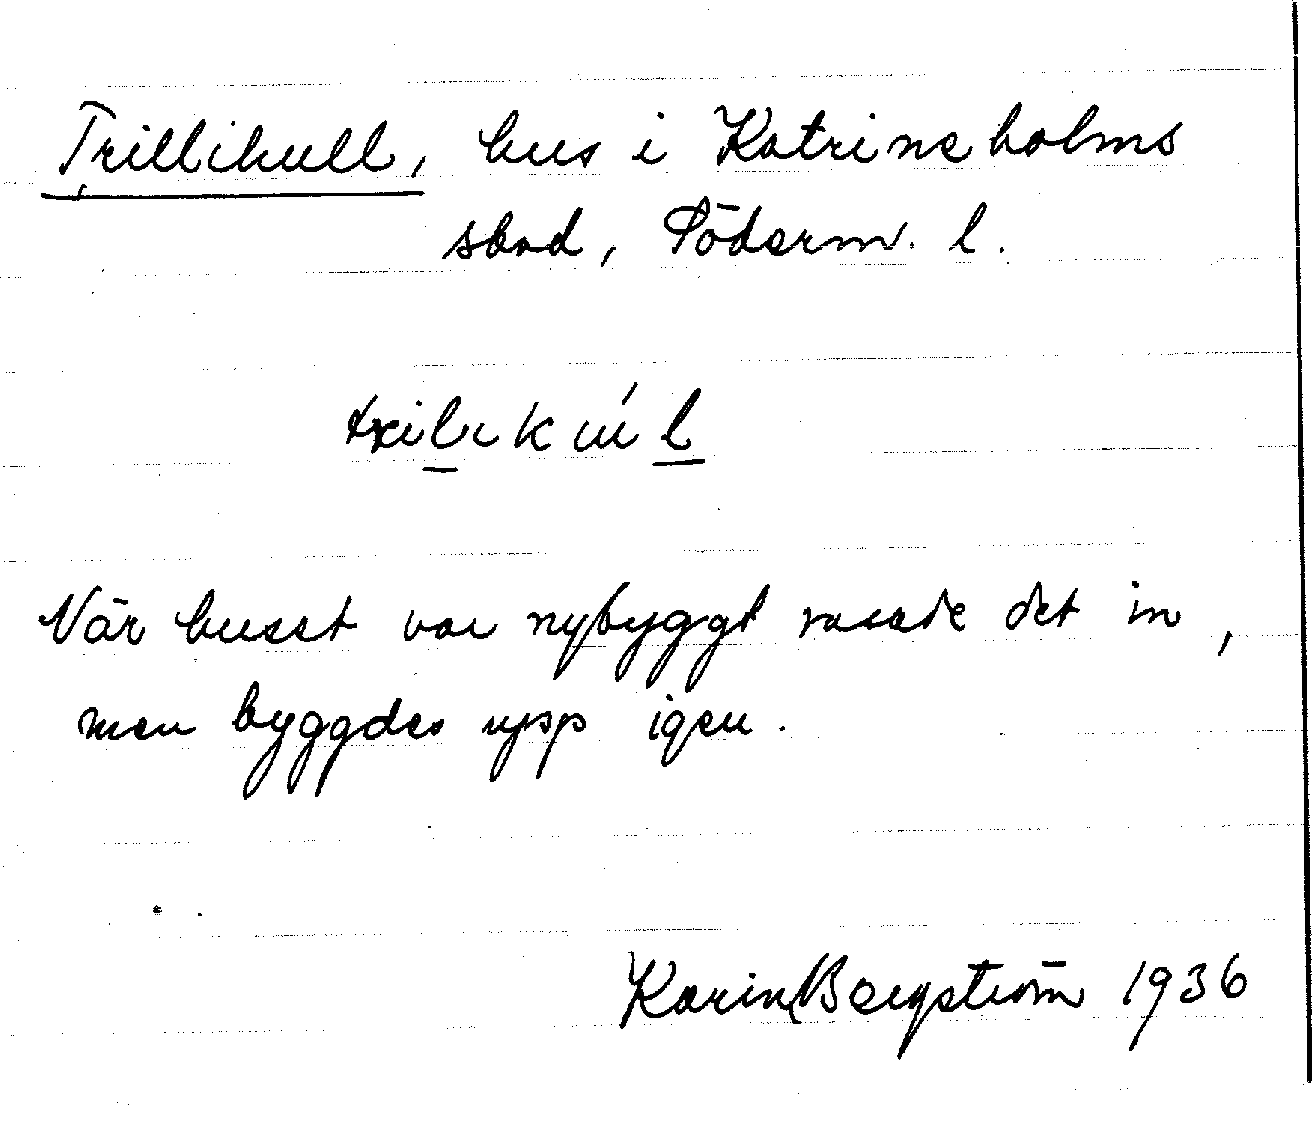 Trillikull, hus i Katrineholms
stad, Söderm. l.
När huset var nybyggt rasade det in,
men byggdes upp igen.
Karin Bergström 1936